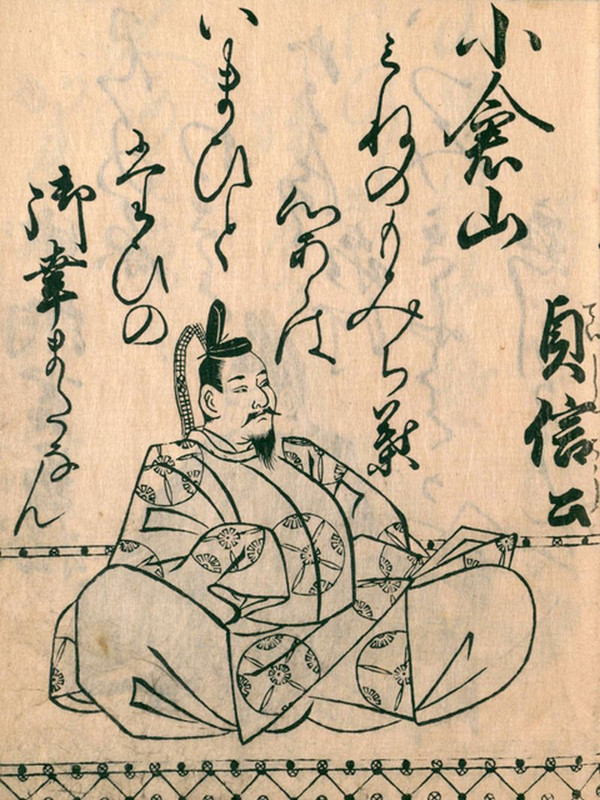 貞信公
小倉山
みねのもみぢ葉
心あらは
いまひと
たひの
御幸またなん